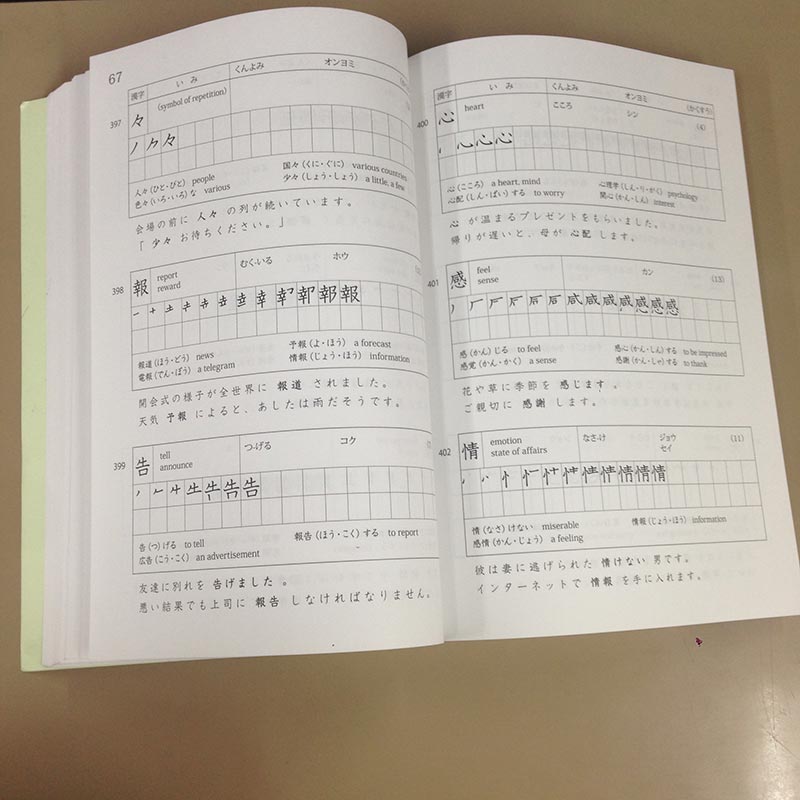 67
漢字 いみ くんよみ オンヨミ
397 々 (symbol of repetition)
ノ ク 々
人々（ひと・びと） people 国々（くに・ぐに） various countries
色々（いろ・いろ）な various 少々（しょう・しょう） a little, a few
会場の前に 人々 の列が続いています。
「 少々 お待ちください。」
398 報 report むく-いる ホウ
reward
報道（ほう・どう） news 予報（よ・ほう） a forecast
電報（でん・ぽう） a telegram 情報（じょう・ほう） information
開会式の様子が全世界に 報道 されました。
天気 予報 によると、あしたは雨だそうです。
399 告 tell つ-げる コク
announce
告（つ）げる to tell 報告（ほう・こく）する to report
広告（こう・こく） an advertisement
友達に別れを 告げました 。
悪い結果でも上司に 報告 しなければなりません。
漢字 いみ くんよみ オンヨミ （かくすう）
400 心 heart こころ シン （4）
心（こころ） a heart, mind 心理学（しん・り・がく） psychology
心配（しん・ぱい）する to worry 関心（かん・しん） interest
心 が温まるプレゼントをもらいました。
帰りが遅いと、母が 心配 します。
401 感 feel カン （13）
sense
感（かん）じる to feel 感心（かん・しん）する to be impressed
感覚（かん・かく） a sense 感謝（かん・しゃ）する to thank
花や草に季節を 感じます 。
ご親切に 感謝 します。
402 情 emotion なさ-け ジョウ （11）
state of affairs セイ
情（なさ）けない miserable 情報（じょう・ほう） information
感情（かん・じょう） a feeling
彼は妻に逃げられた 情けない 男です。
インターネットで 情報 を手に入れます。